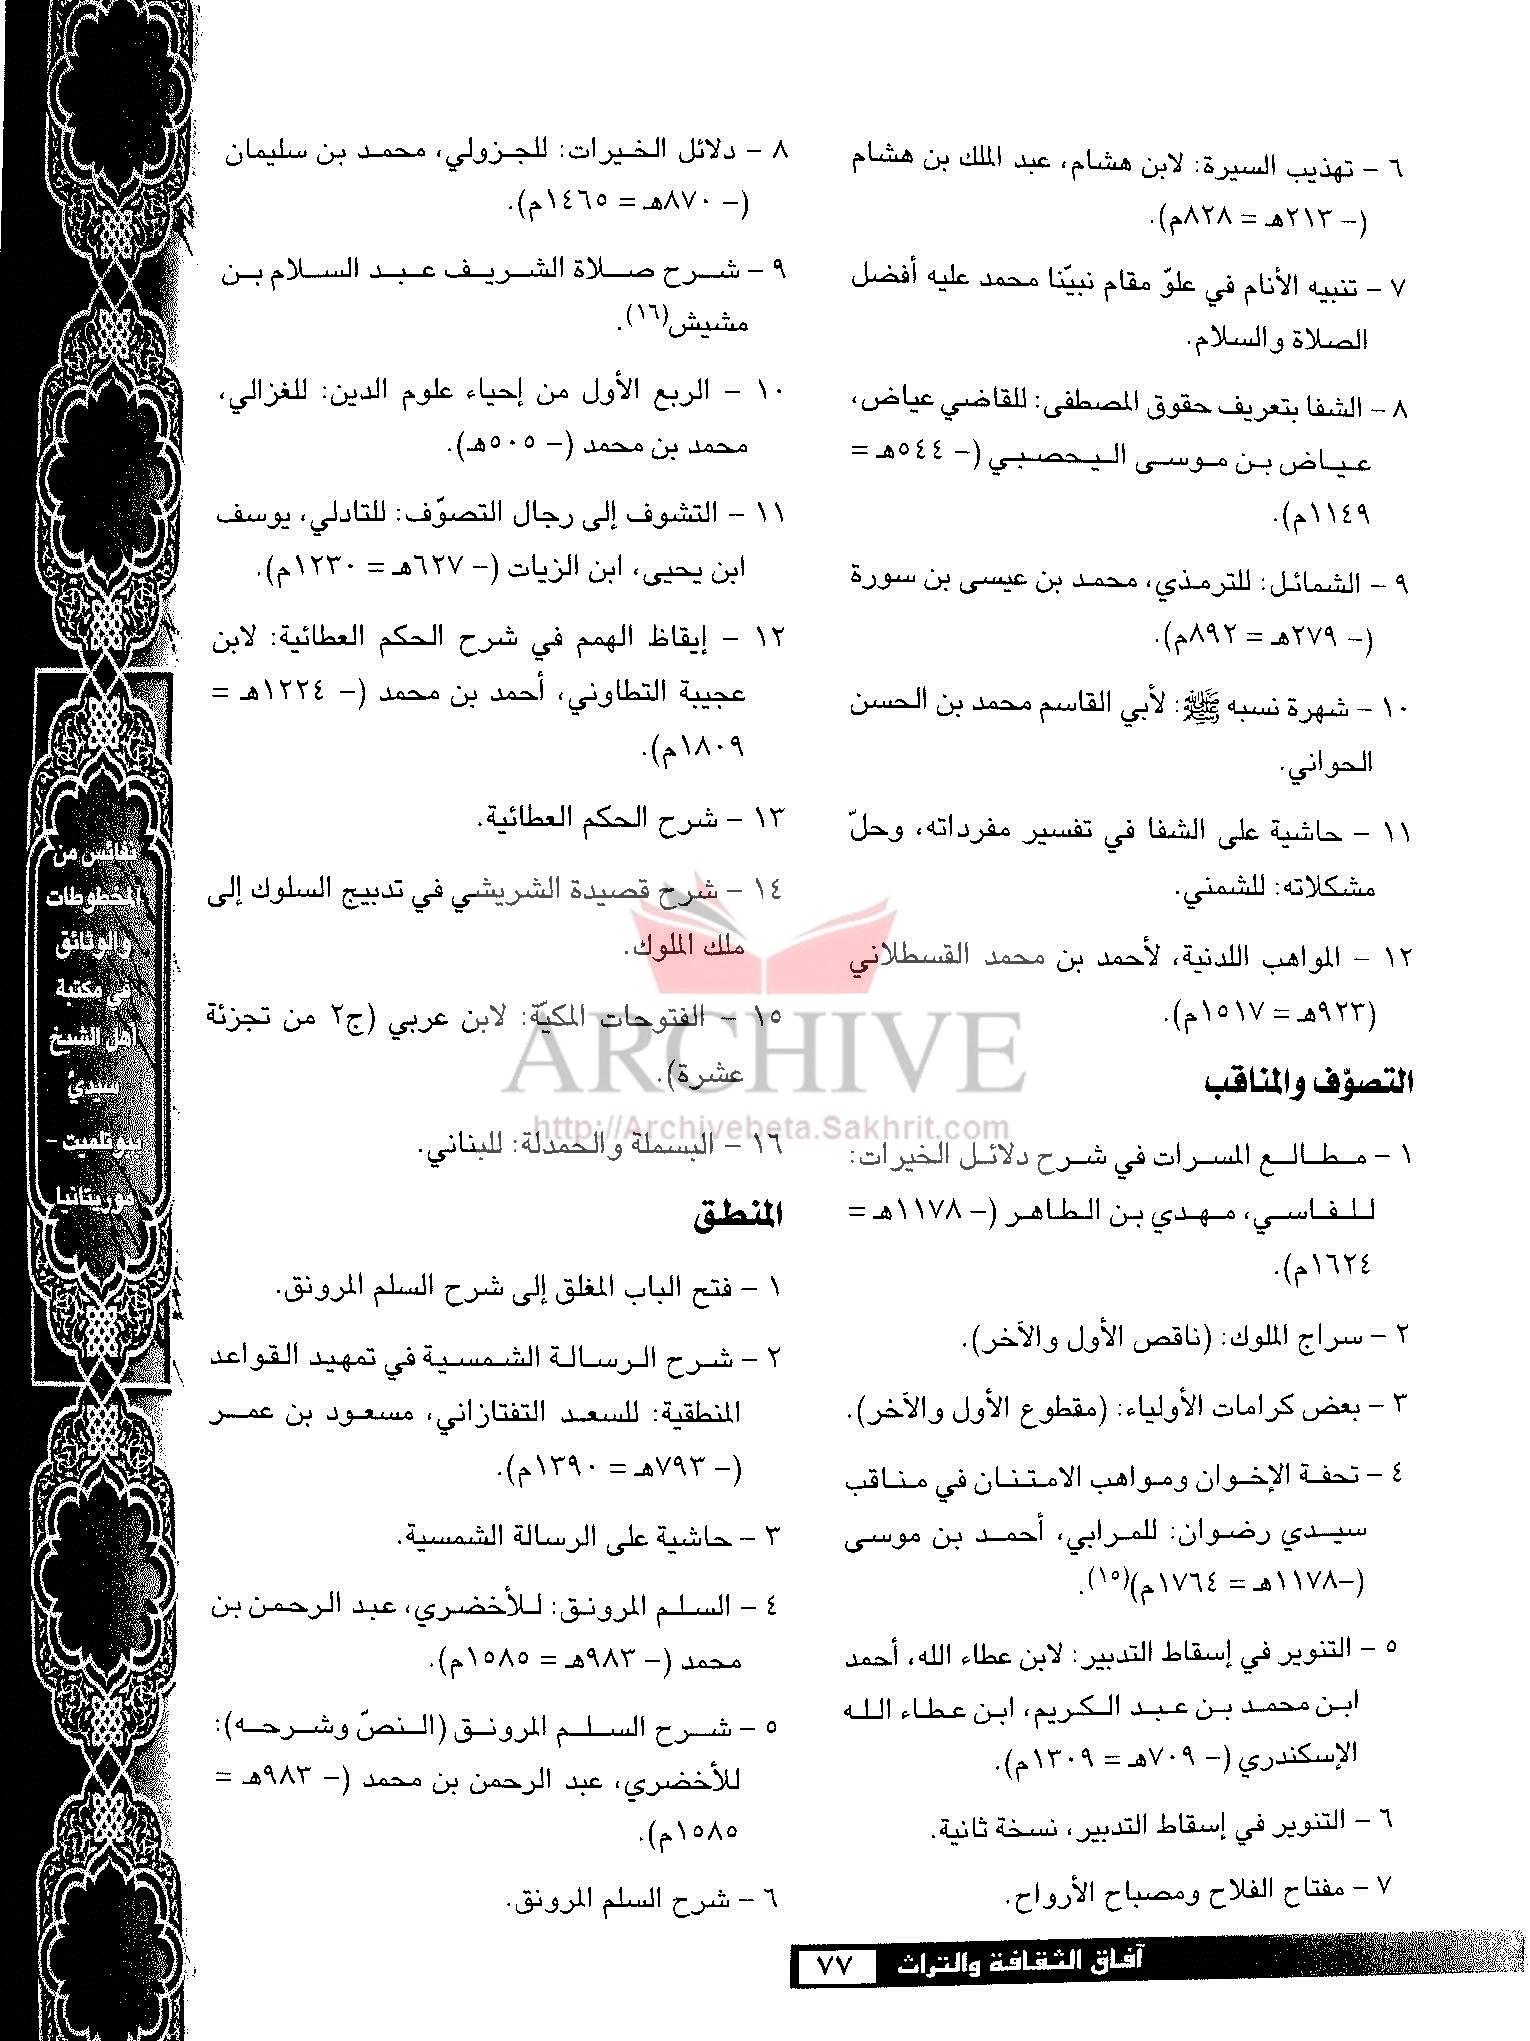 ٦ - تهذيب السيرة: لابن هشام، عبد الملك بن هشام
(- ٢١٣هـ = ٨٢٨م).
٧ - تنبيه الأنام في علوّ مقام نبيّنا محمد عليه أفضل
الصلاة والسلام.
٨ - الشفا بتعريف حقوق المصطفى: للقاضي عياض،
عياض بن موسى اليحصبي (- ٥٤٤هـ =
١١٤٩م).
٩ - الشمائل: للترمذي، محمد بن عيسى بن سورة
(- ٢٧٩هـ = ٨٩٢م).
١٠ - شهرة نسبه ﷺ: لأبي القاسم محمد بن الحسن
الحواني.
١١ - حاشية على الشفا في تفسير مفرداته، وحلّ
مشكلاته: للشمني.
١٢ - المواهب اللدنية، لأحمد بن محمد القسطلاني
(٩٢٣هـ = ١٥١٧م).
التصوّف والمناقب
١ - مطالع المسرات في شرح دلائل الخيرات:
للفاسي، مهدي بن الطاهر (- ١١٧٨هـ =
١٦٢٤م).
٢ - سراج الملوك: (ناقص الأول والآخر).
٣ - بعض كرامات الأولياء: (مقطوع الأول والآخر).
٤ - تحفة الإخوان ومواهب الامتنان في مناقب
سيدي رضوان: للمرابي، أحمد بن موسى
(-١١٧٨هـ = ١٧٦٤م)(١٥).
٥ - التنوير في إسقاط التدبير: لابن عطاء الله، أحمد
ابن محمد بن عبد الكريم، ابن عطاء الله
الإسكندري (- ٧٠٩هـ = ١٣٠٩م).
٦ - التنوير في إسقاط التدبير، نسخة ثانية.
٧ - مفتاح الفلاح ومصباح الأرواح.
٨ - دلائل الخيرات: للجزولي، محمد بن سليمان
(- ٨٧٠هـ = ١٤٦٥م).
٩ - شرح صلاة الشريف عبد السلام بن
مشيش(١٦).
١٠ - الربع الأول من إحياء علوم الدين: للغزالي،
محمد بن محمد (- ٥٠٥هـ).
١١ - التشوف إلى رجال التصوّف: للتادلي، يوسف
ابن يحيى، ابن الزيات (- ٦٢٧هـ = ١٢٣٠م).
١٢ - إيقاظ الهمم في شرح الحكم العطائية: لابن
عجيبة التطاوني، أحمد بن محمد (- ١٢٢٤هـ =
١٨٠٩م).
١٣ - شرح الحكم العطائية.
١٤ - شرح قصيدة الشريشي في تدبيج السلوك إلى
ملك الملوك.
١٥ - الفتوحات المكيّة: لابن عربي (ج٢ من تجزئة
عشرة).
١٦ - البسملة والحمدلة: للبناني.
المنطق
١ - فتح الباب المغلق إلى شرح السلم المرونق.
٢ - شرح الرسالة الشمسية في تمهيد القواعد
المنطقية: للسعد التفتازاني، مسعود بن عمر
(- ٧٩٣هـ = ١٣٩٠م).
٣ - حاشية على الرسالة الشمسية.
٤ - السلم المرونق: للأخضري، عبد الرحمن بن
محمد (- ٩٨٣هـ = ١٥٨٥م).
٥ - شرح السلم المرونق (النصّ وشرحه):
للأخضري، عبد الرحمن بن محمد (- ٩٨٣هـ =
١٥٨٥م).
٦ - شرح السلم المرونق.
نفائس من
المخطوطات
والوثائق
في مكتبة
أهل الشيخ
سيديَ
بوتلميت -
موريتانيا
آفاق الثقافة والتراث ٧٧
ARCHIVE
http://Archivebeta.Sakhrit.com